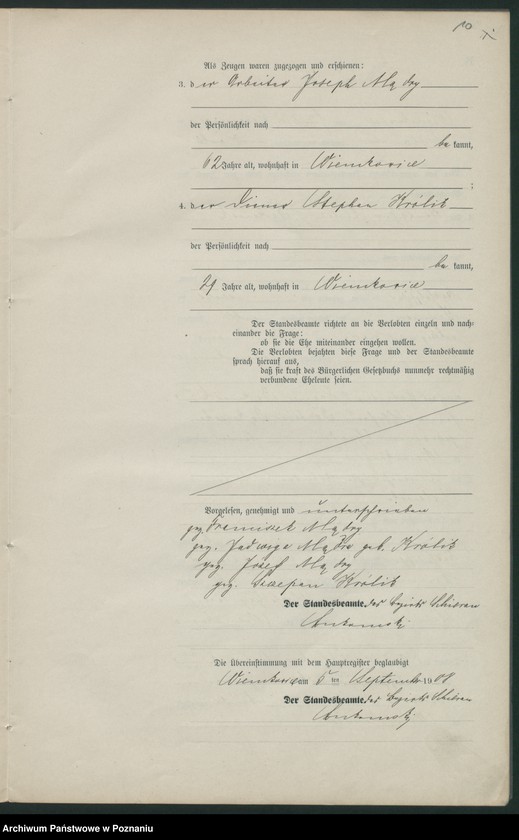 10
Als Zeugen waren zugezogen und erschienen:
3. der Arbeiter Joseph Mądry
der Persönlichkeit nach
be kannt,
62 Jahre alt, wohnhaft in Wiemkowice
;
4. der Diener Stephan Królik
der Persönlichkeit nach
be kannt,
29 Jahre alt, wohnhaft in Wiemkowice
Der Standesbeamte richtete an die Verlobten einzeln und nach-
einander die Frage:
ob sie die Ehe miteinander eingehen wollen.
Die Verlobten bejahten diese Frage und der Standesbeamte
sprach hierauf aus,
daß sie kraft des Bürgerlichen Gesetzbuchs nunmehr rechtmäßig
verbundene Eheleute seien.
Vorgelesen, genehmigt und unterschrieben
gez. Franciszek Mądry
gez. Jadwiga Mądra geb. Królik
gez. Józef Mądry
gez. Szczepan Królik
Der Standesbeamte. des Bezirks
Die Übereinstimmung mit dem Hauptregister beglaubigt
am 5 ten September 1908
Der Standesbeamte. des Bezirks
Archiwum Państwowe w Poznaniu